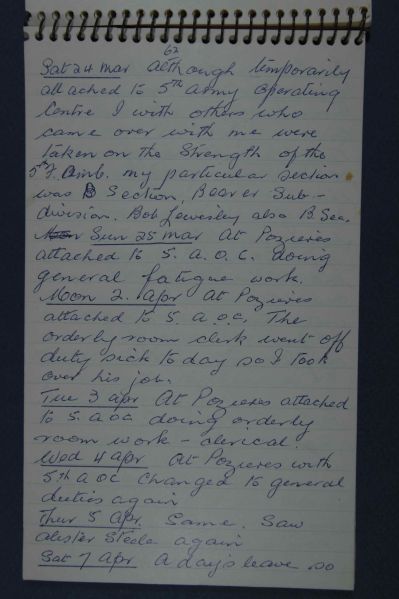 62
Sat 24 Mar Although temporarily
attached to 5th Army Operating
Centre I with others who
came over with me were
taken on the Strength of the
5th F. Amb. my particular section
was B Section, Bearer Sub-
division. Bob Lewesley also B. Sec.
Sun 25 Mar At Pozieres
attached to 5. A. O. C. doing
general fatigue work.
Moon 2. Apr At Pozieres
attached to 5. A.O.C. The
orderly room clerk went off
duty sick to day so I took
over his job.
Tue 3 Apr At Pozieres attached
to 5. AOC doing orderly
room work - clerical.
Wed 4 Apr At Pozieres with
5th AOC changed to general
duties again
Thur 5 Apr. Same. Saw
Alister Steele again
Sat 7 Apr A day's leave so